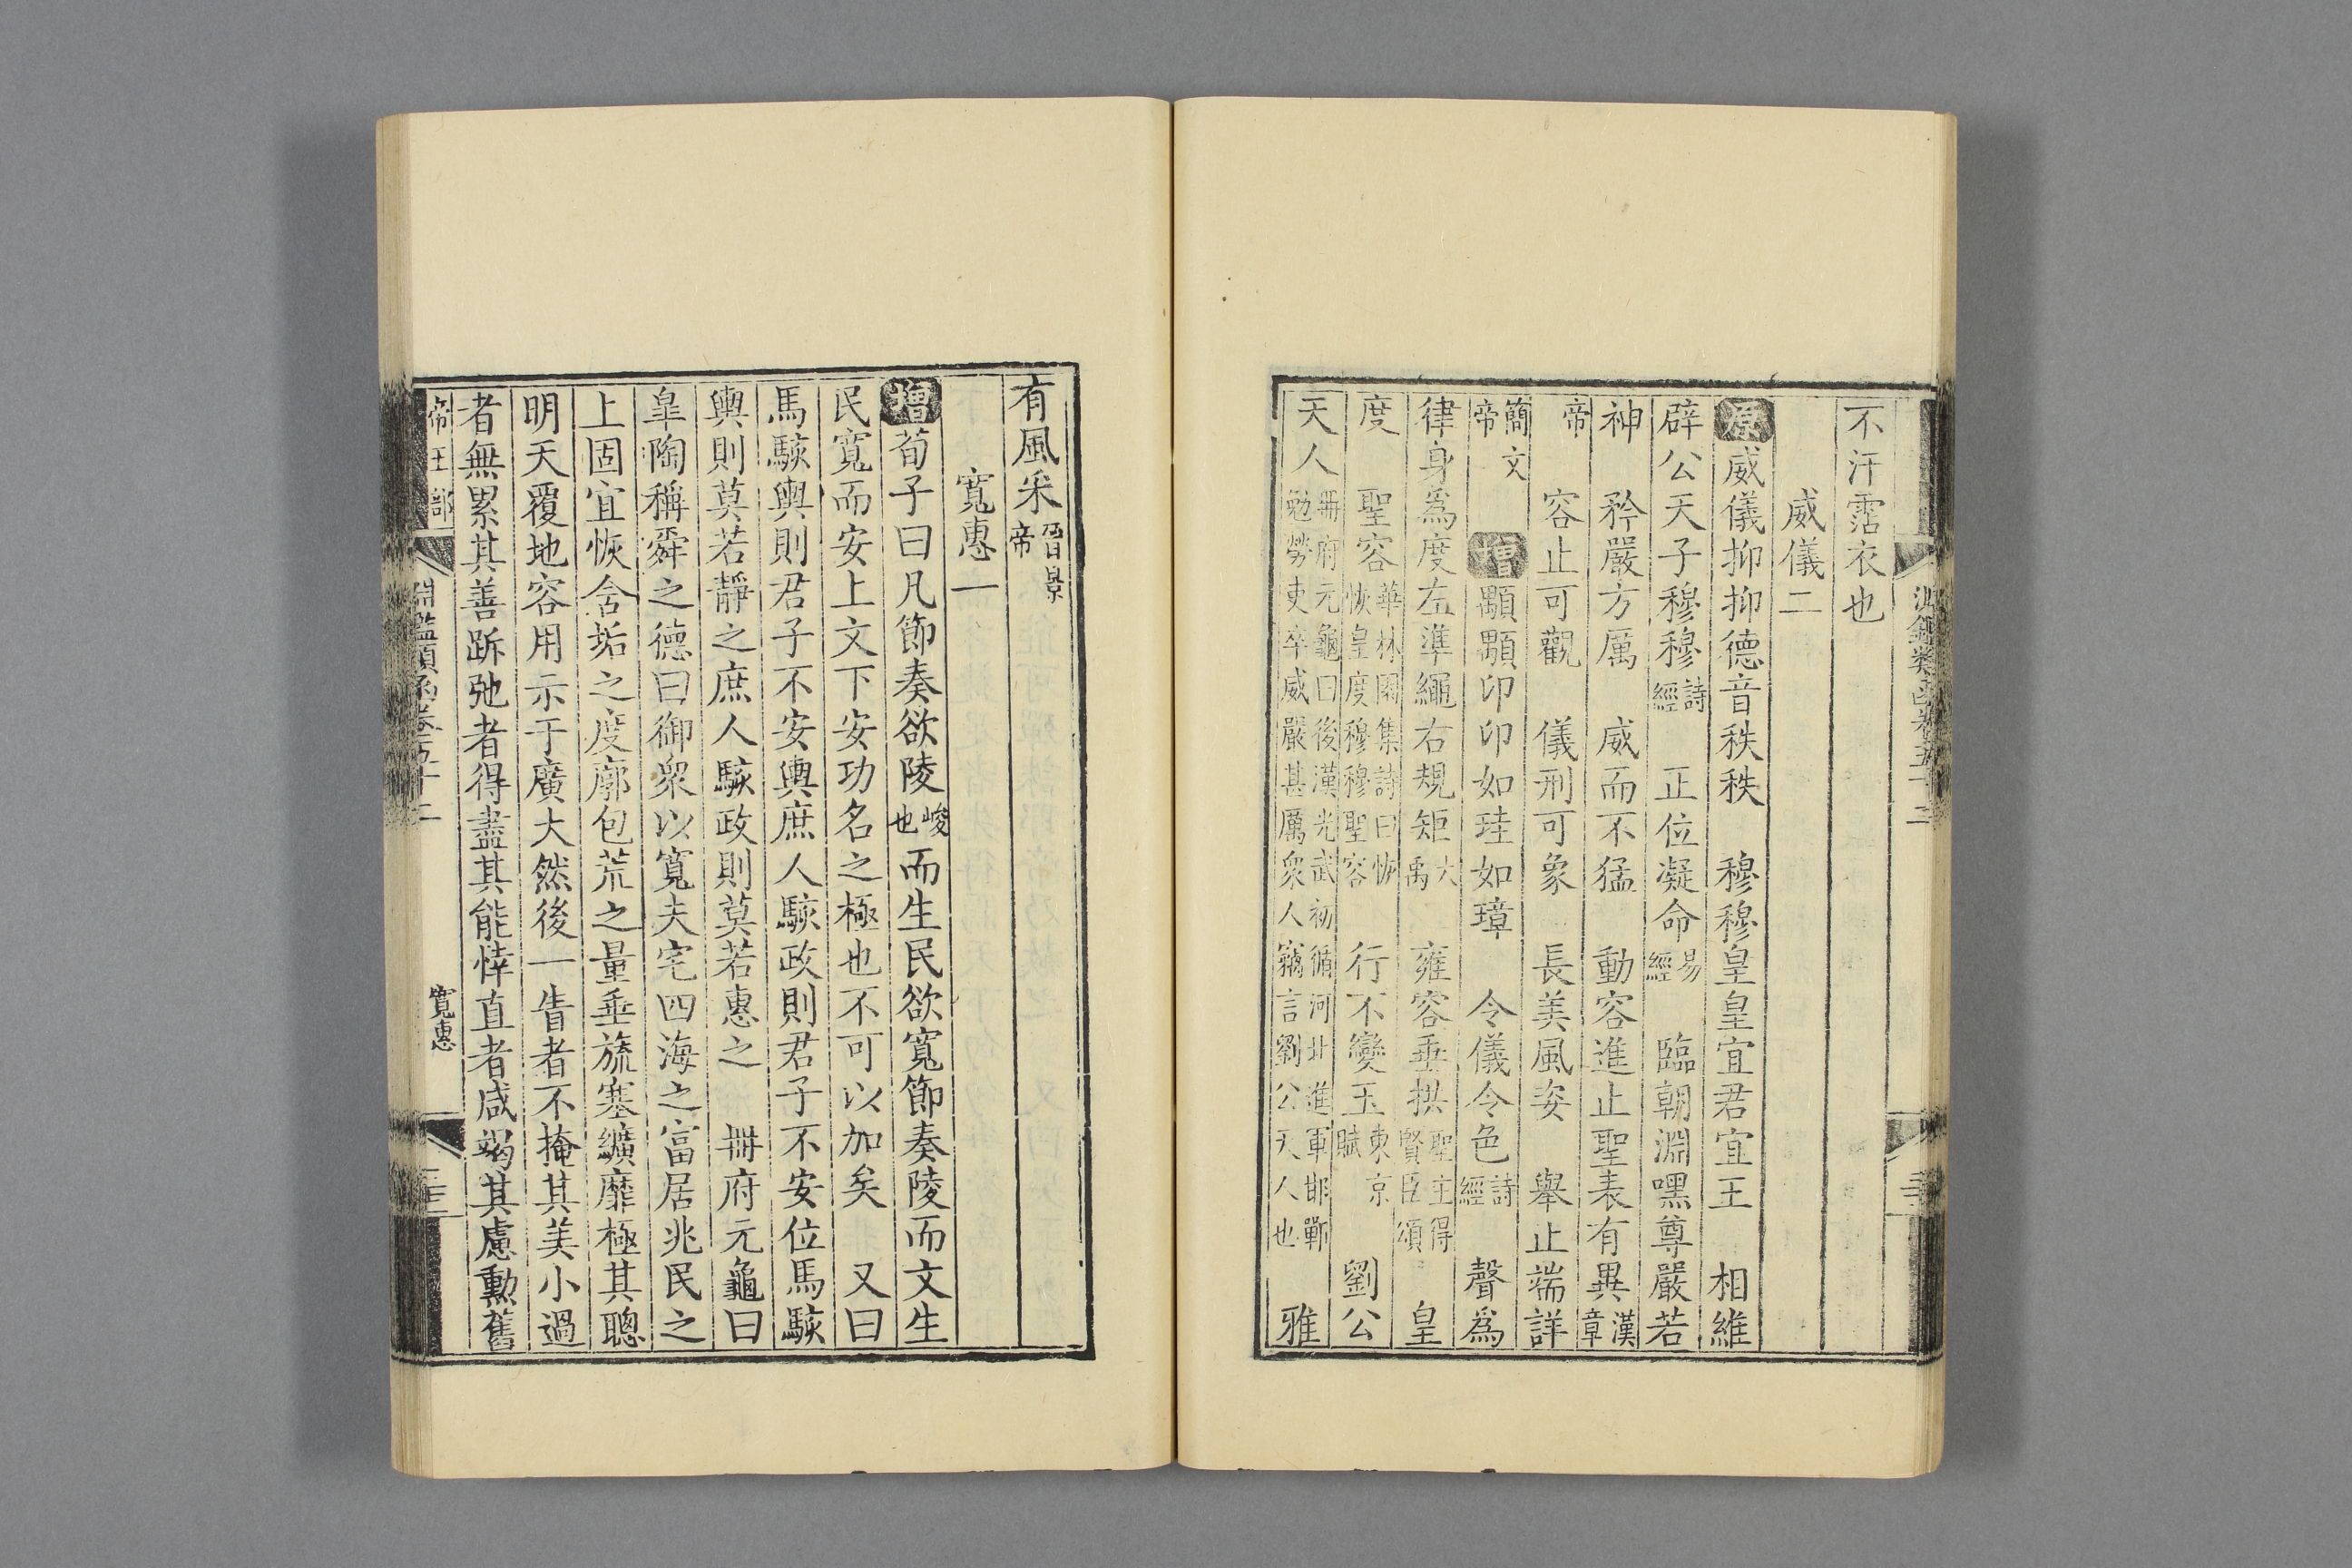 淵鑑類函卷五十二
不汗霑衣也
威儀二
原威儀抑抑德音秩秩 穆穆皇皇宜君宜王 相維
辟公天子穆穆詩經 正位凝命易經 臨朝淵嘿尊嚴若
神 矜嚴方厲 威而不猛 動容進止聖表有異漢章
帝 容止可觀 儀刑可象 長美風姿 舉止端詳
簡文帝 增顒顒卬卬如珪如璋 令儀令色詩經 聲爲
律身爲度左準繩右規矩大禹 雍容垂拱聖主得賢臣頌 皇
度 聖容華林園集詩曰恢恢皇度穆穆聖容 行不變玉東京賦 劉公
天人册府元龜曰後漢光武初循河北進軍邯鄲勉勞吏卒威嚴甚厲衆人竊言劉公天人也 雅
有風采晉景帝
寬惠一
增荀子曰凡節奏欲陵峻也而生民欲寬節奏陵而文生
民寬而安上文下安功名之極也不可以加矣 又曰
馬駭輿則君子不安輿庶人駭政則君子不安位馬駭
輿則莫若靜之庶人駭政則莫若惠之 册府元龜曰
臯陶稱舜之德曰御衆以寬夫宅四海之富居兆民之
上固宜恢含垢之度廓包荒之量垂旒塞纊靡極其聰
明天覆地容用示于廣大然後一眚者不掩其美小過
者無累其善跅弛者得盡其能悻直者咸竭其慮勳舊
帝王部 淵鑑類函卷五十二 寬惠